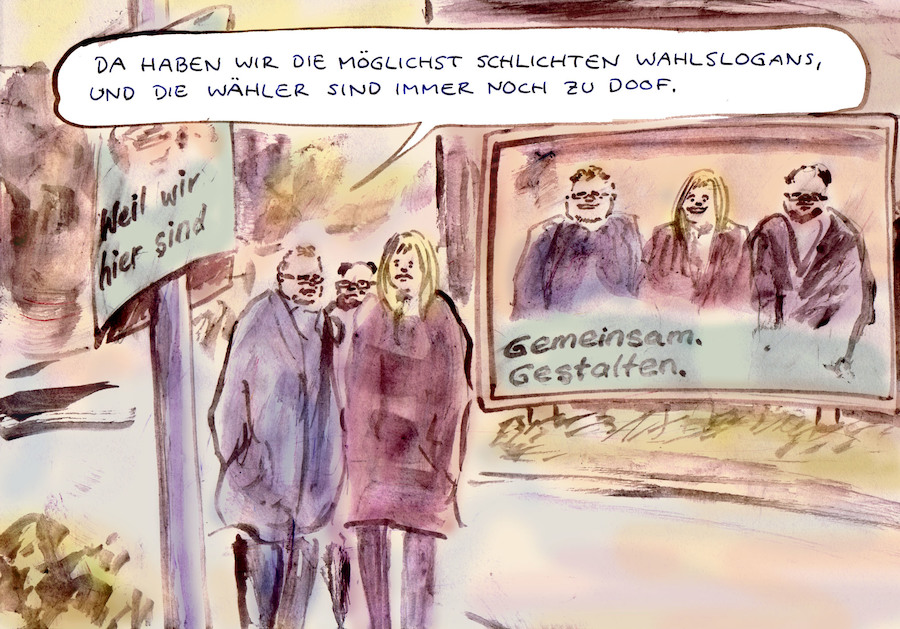 DA HABEN WIR DIE MÖGLICHST SCHLICHTEN WAHLSLOGANS,
UND DIE WÄHLER SIND IMMER NOCH ZU DOOF.
Weil wir
hier sind
Gemeinsam.
Gestalten.